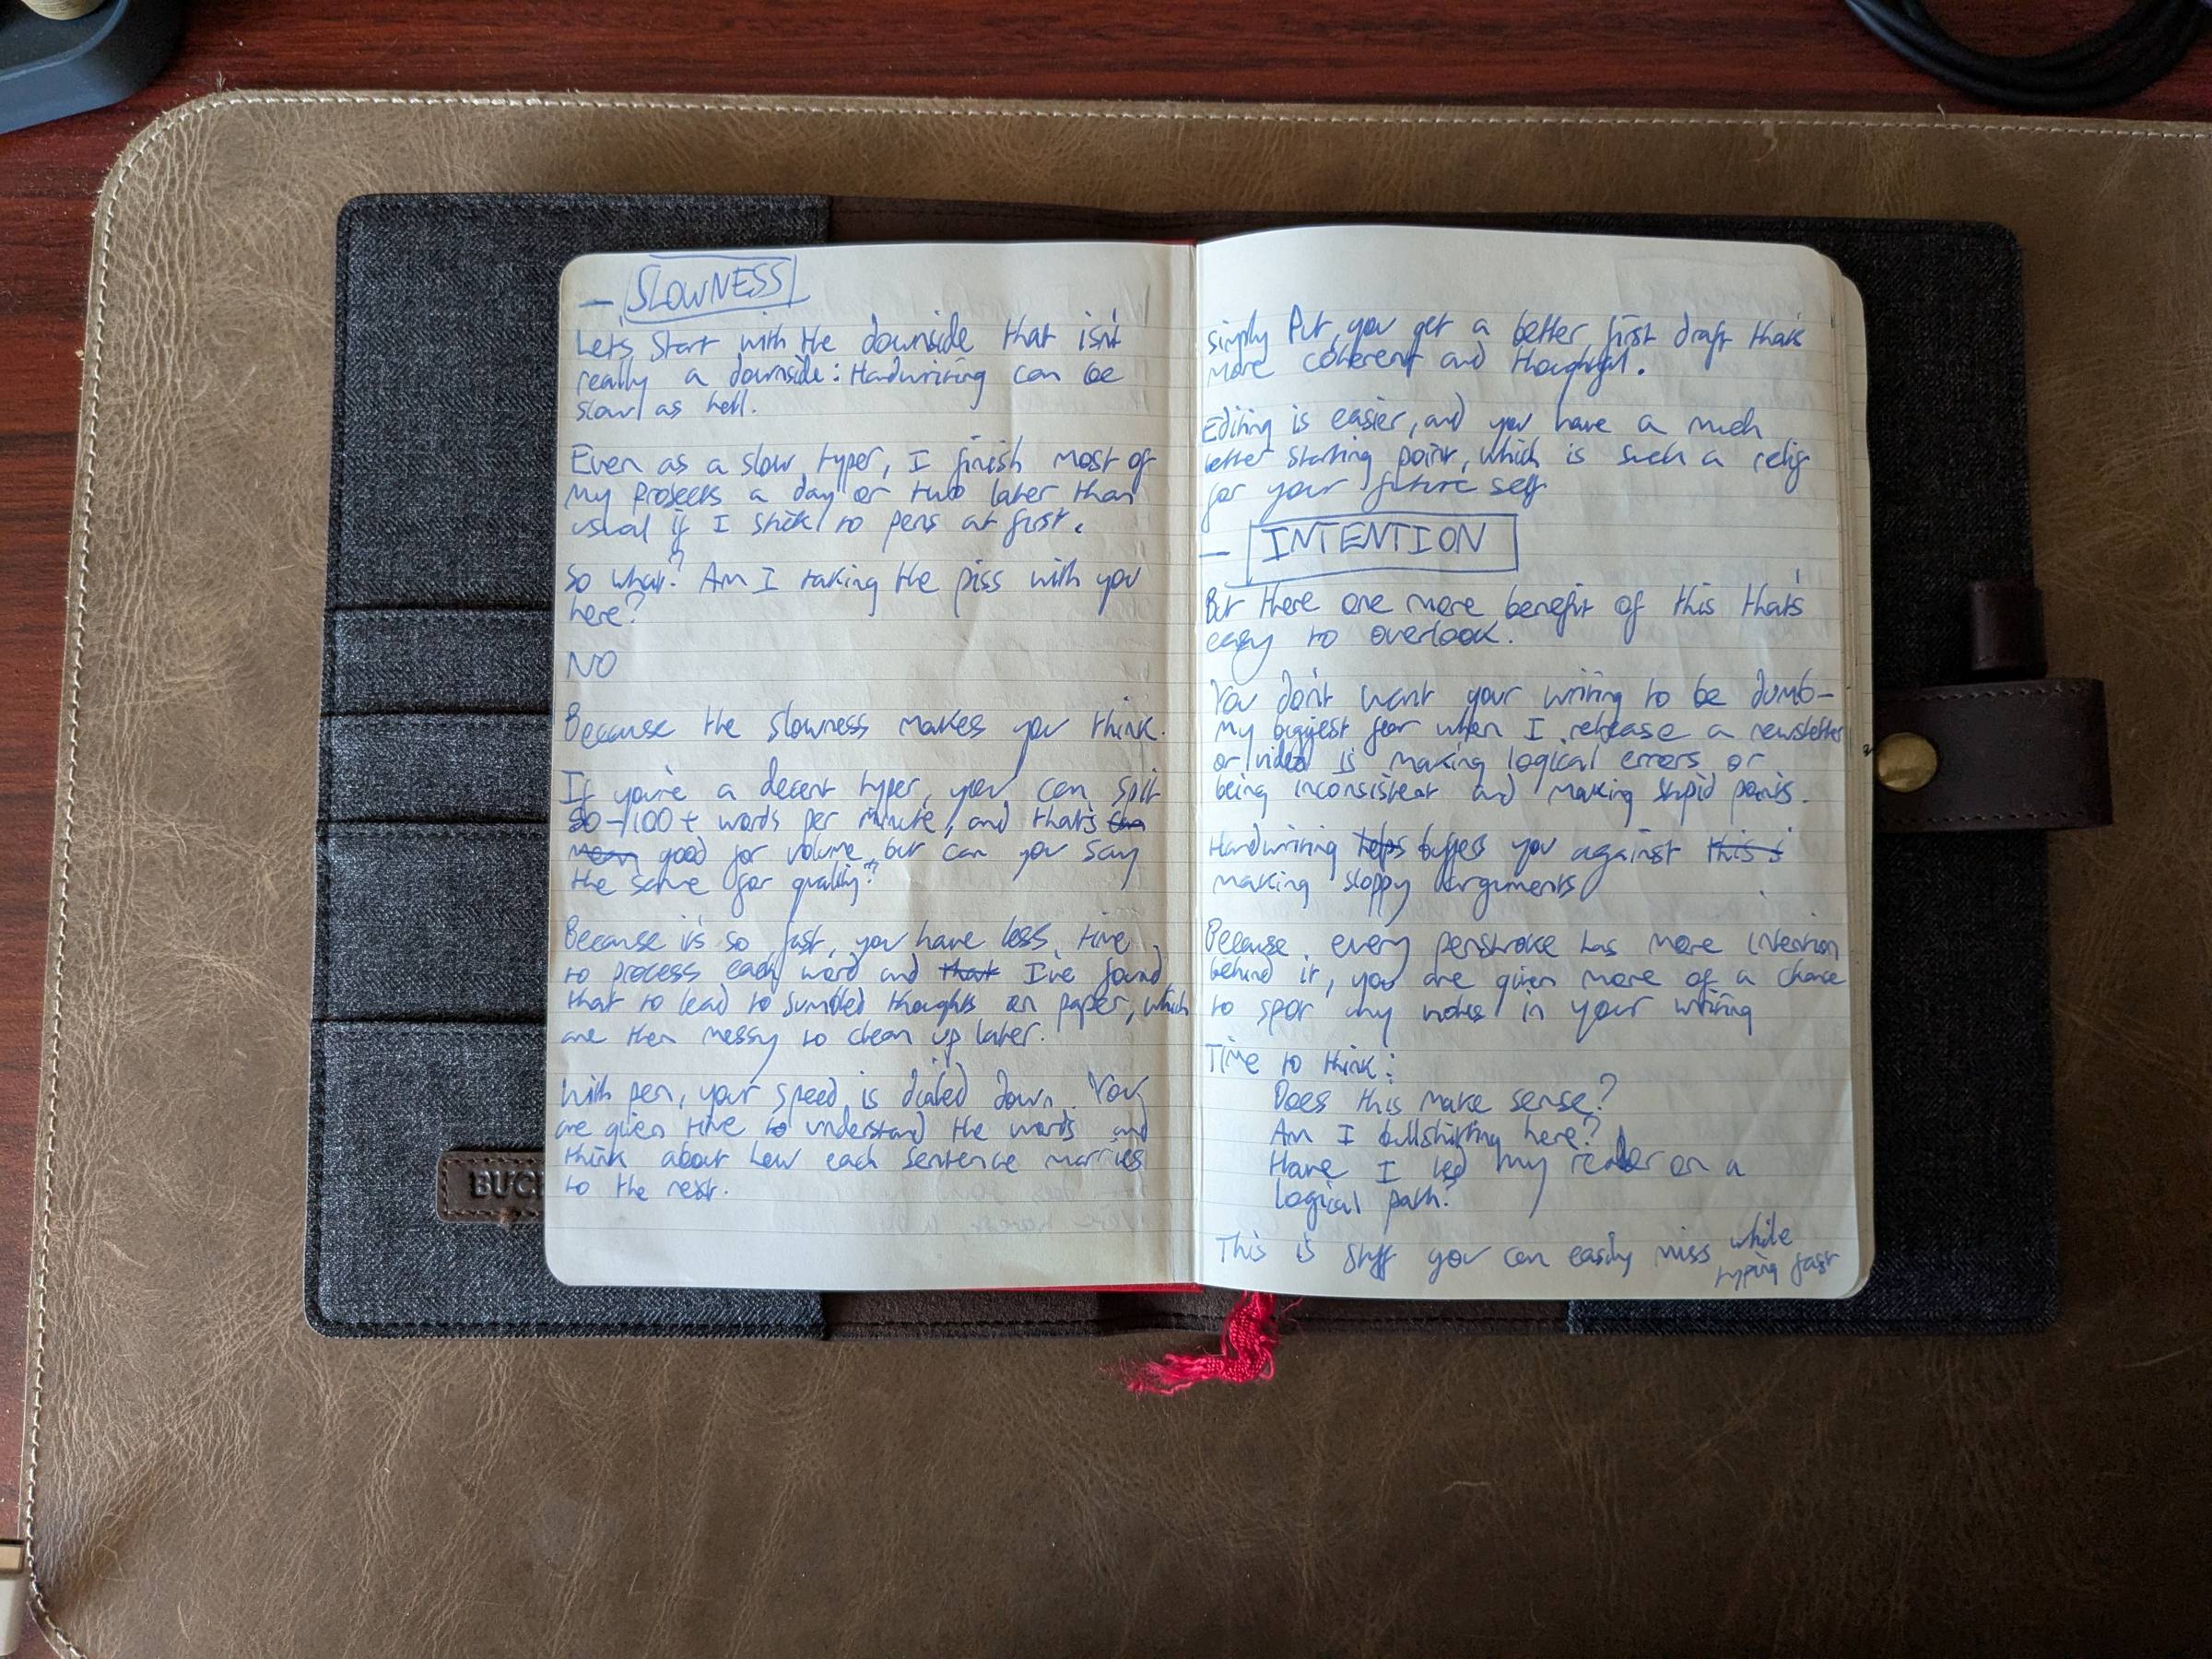 — SLOWNESS
Let's start with the downside that isn't
really a downside: Handwriting can be
slow as hell.
Even as a slow typer, I finish most of
my projects a day or two later than
usual if I stick to pens at first.
So what? Am I taking the piss with you
here?
NO
Because the slowness makes you think.
If you're a decent typer, you can spit
80-100+ words per minute, and that's
mean good for volume, but can you say
the same for quality?
Because it's so fast, you have less time
to process each word and that I've found
that to lead to jumbled thoughts on paper, which
are then messy to clean up later.
With pen, your speed is dialed down. You
are given time to understand the words and
think about how each sentence marries
to the next.
BUC
Simply Put, you get a better first draft that's
more coherent and thoughtful.
Editing is easier, and you have a much
better starting point, which is such a relief
for your future self
— INTENTION
But there one more benefit of this that's
easy to overlook.
You don't want your writing to be dumb-
My biggest fear when I release a newsletter
or video is making logical errors or
being inconsistent and making stupid points.
Handwriting helps buffers you against this i
making sloppy arguments
Because every penstroke has more intention
behind it, you are given more of a chance
to spot any notes in your writing
Time to think:
Does this make sense?
Am I bullshitting here?
Have I led my reader on a
logical path?
This is stuff you can easily miss while
typing fast